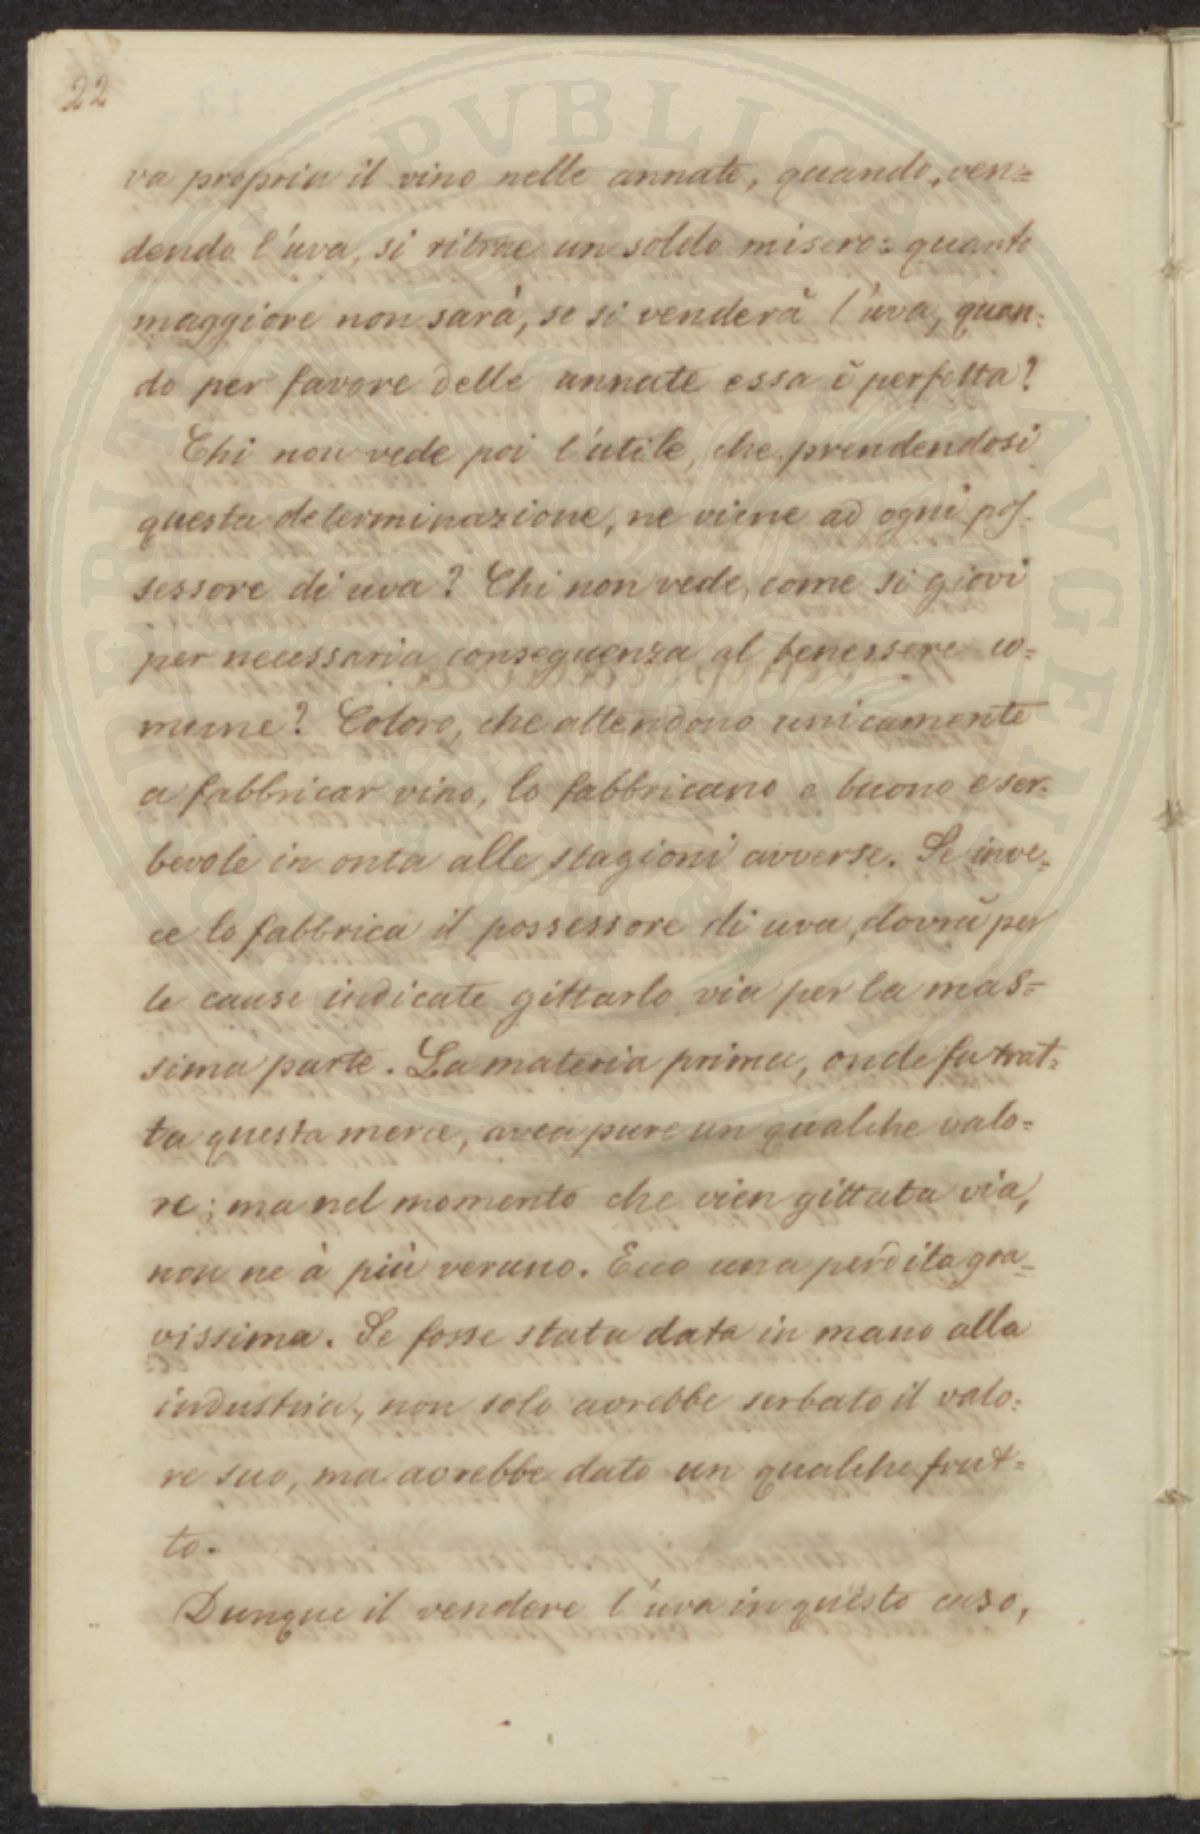 22
va propria il vino nelle annate, quando, ven=
dendo l'uva, si ritrae un soldo misero: quanto
maggiore non sarà, se si venderà l'uva, quan=
do per favore delle annate essa è perfetta?
Chi non vede poi l'utile, che prendendosi
questa determinazione, ne viene ad ogni pos=
sessore di uva? Chi non vede, come si giovi
per necessaria conseguenza al benessere co=
mune? Coloro, che attendono unicamente
a fabbricar vino, lo fabbricano e buono e ser=
bevole in onta alle stagioni avverse. Se inve=
ce lo fabbrica il possessore di uva, dovrà per
le cause indicate gittarlo via per la mas=
sima parte. La materia prima, onde fu trat=
ta questa merce, avea pure un qualche valo=
re; ma nel momento che vien gittata via,
non ne à più veruno. Ecco una perdita gra=
vissima. Se fosse stata data in mano alla
industria, non solo avrebbe serbato il valo=
re suo, ma avrebbe dato un qualche frut=
to.
Dunque il vendere l'uva in questo caso,
PERITI PVBLICA AVGENT